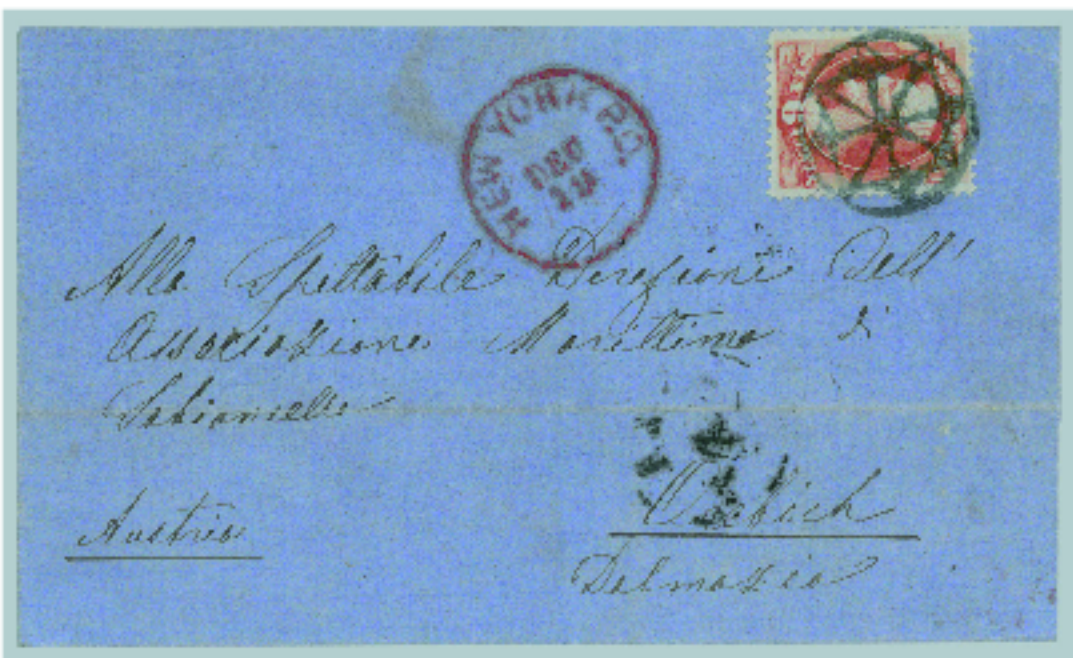 NEW YORK P.O.
DEC
Alla Spettabile Direzione Dell'
Associazione Marittima di
Sabioncello
Austria
Orebich
Dalmazia